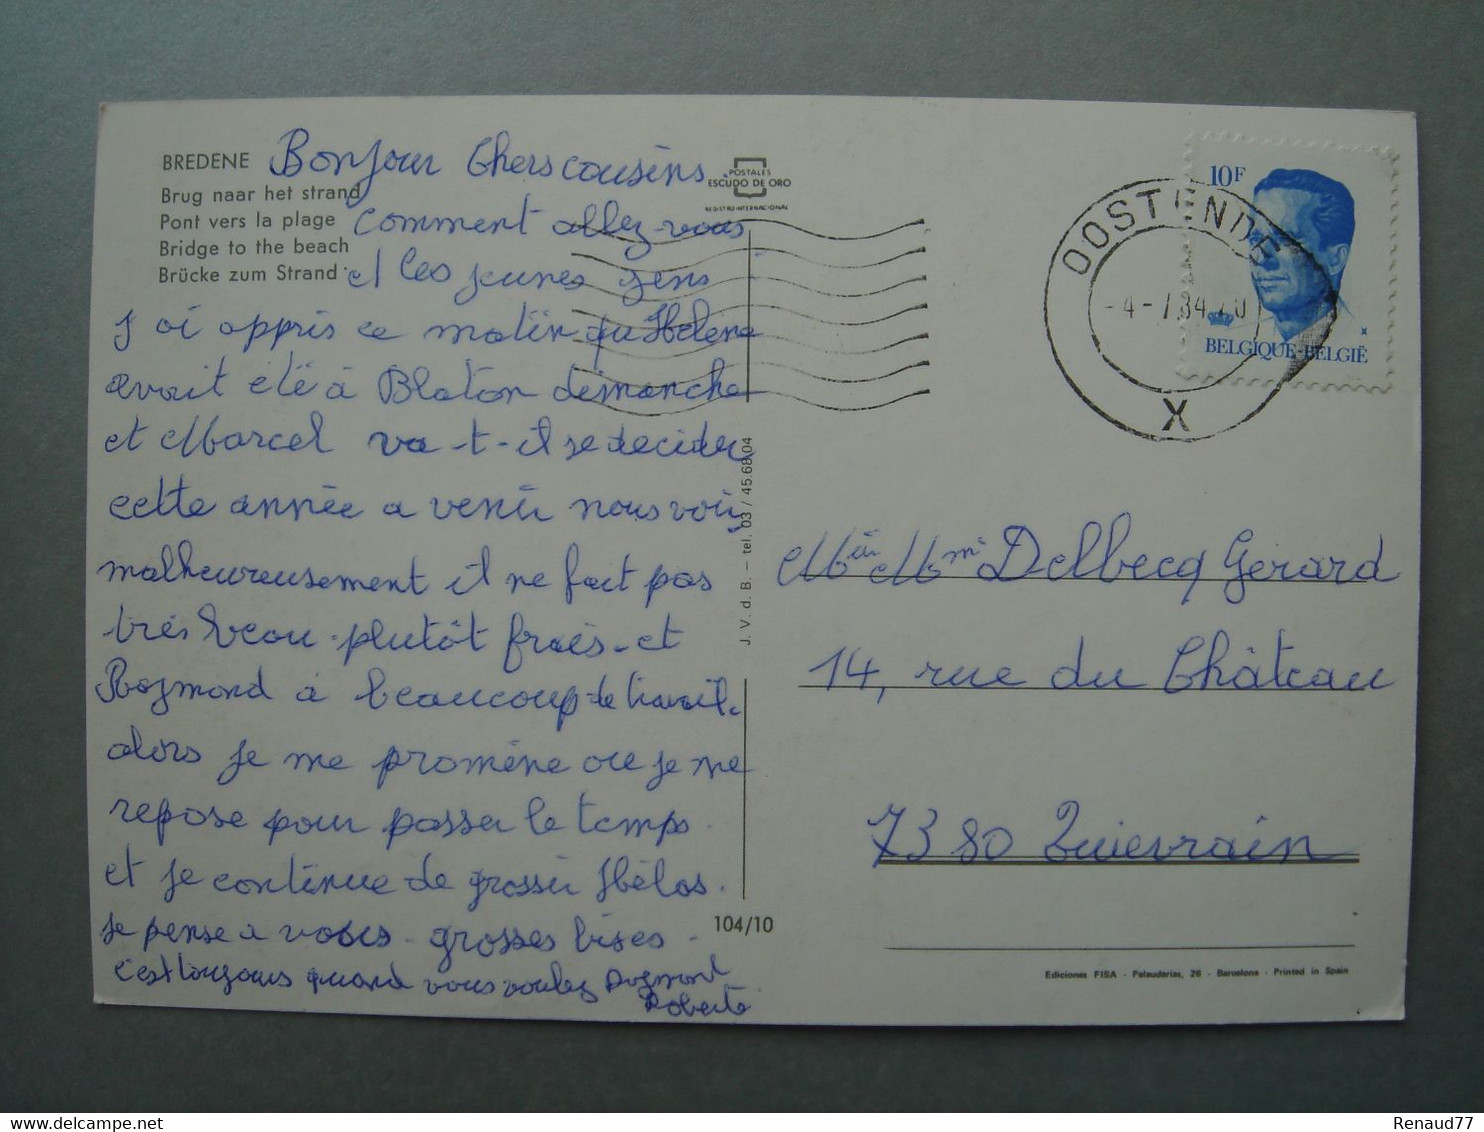 BREDENE
Brug naar het strand
Pont vers la plage
Bridge to the beach
Brücke zum Strand
Bonjour Chers cousins
comment allez-vous
et les jeunes gens
J ai appris ce matin qu Hélène
avait été à Blaton dimanche
et Marcel va-t-il se decider
cette année a venir nous voir
malheureusement il ne fait pas
très beau. plutôt frais. et
Rogmond à beaucoup de travail.
alors je me promène ou je me
repose pour passer le temps.
et je continue de grossir Hélas.
je pense a vous. grosses bises.
c'est toujours quand vous voulez Rogmont
Roberte
POSTALES
ESCUDO DE ORO
REGISTRO INTERNACIONAL
J. V. d. B. – tel. 03 / 45.68.04
104/10
10F
BELGIQUE-BELGIË
OOSTENDE
X
Mr Mme Delbecq Gérard
14, rue du Château
7380 Quievrain
Ediciones FISA - Palaudarias, 26 - Barcelona - Printed in Spain
Renaud77